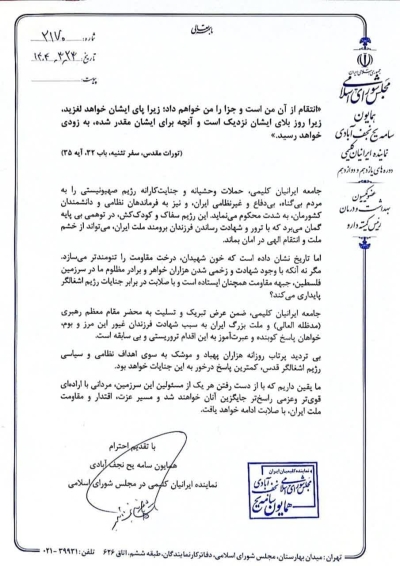 باسمه تعالی
شماره: ۲۱۷۰
تاریخ: ۱۴۰۴/۳/۲۴
پیوست:
جمهوری اسلامی ایران
مجلس شورای اسلامی
همایون
سامه یح نجف آبادی
نماینده ایرانیان کلیمی
دوره‌های یازدهم و دوازدهم
عضو کمیسیون
بهداشت و درمان
رئیس کمیته دارو
«انتقام از آن من است و جزا را من خواهم داد؛ زیرا پای ایشان خواهد لغزید،
زیرا روز بلای ایشان نزدیک است و آنچه برای ایشان مقدر شده، به زودی
خواهد رسید.»
(تورات مقدس، سفر تثنیه، باب ۳۲، آیه ۳۵)
جامعه ایرانیان کلیمی، حملات وحشیانه و جنایت‌کارانه رژیم صهیونیستی را به
مردم بی‌گناه، بی‌دفاع و غیرنظامی ایران، و نیز به فرماندهان نظامی و دانشمندان
کشورمان، به شدت محکوم می‌نماید. این رژیم سفاک و کودک‌کش، در توهمی بی پایه
گمان می‌برد که با ترور و شهادت رساندن فرزندان برومند ملت ایران، می‌تواند از خشم
ملت و انتقام الهی در امان بماند.
اما تاریخ نشان داده است که خون شهیدان، درخت مقاومت را تنومندتر می‌سازد.
مگر نه آنکه با وجود شهادت و زخمی شدن هزاران خواهر و برادر مظلوم ما در سرزمین
فلسطین، جبهه مقاومت همچنان ایستاده است و با صلابت در برابر جنایات رژیم اشغالگر
پایداری می‌کند؟
جامعه ایرانیان کلیمی، ضمن عرض تبریک و تسلیت به محضر مقام معظم رهبری
(مدظله العالی) و ملت بزرگ ایران به سبب شهادت فرزندان غیور این مرز و بوم،
خواهان پاسخ کوبنده و عبرت‌آموز به این اقدام تروریستی و بی سابقه است.
بی تردید پرتاب روزانه هزاران پهپاد و موشک به سوی اهداف نظامی و سیاسی
رژیم اشغالگر قدس، کمترین پاسخ درخور به این جنایات خواهد بود.
ما یقین داریم که با از دست رفتن هر یک از مسئولین این سرزمین، مردانی با اراده‌ای
قوی‌تر وعزمی راسخ‌تر جایگزین آنان خواهند شد و مسیر عزت، اقتدار و مقاومت
ملت ایران، با صلابت ادامه خواهد یافت.
با تقدیم احترام
همایون سامه یح نجف آبادی
نماینده ایرانیان کلیمی در مجلس شورای اسلامی
نماینده کلیمیان ایران
مجلس شورای اسلامی
نجف آبادی
همایون سامه یح
تهران: میدان بهارستان، مجلس شورای اسلامی، دفاتر کار نمایندگان، طبقه ششم، اتاق ۶۲۶ تلفن: ۳۹۹۳۱-۰۲۱